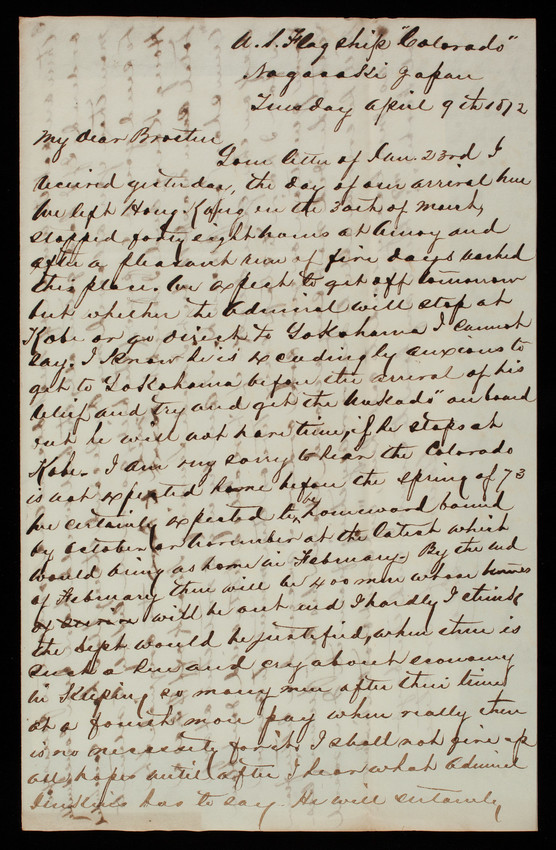 U.S. Flagship "Colorado"
Nagasaki Japan
Tuesday April 9th 1872
My Dear Brother
Your letter of Jan. 23rd I
received yesterday, the day of our arrival here
We left Hong Kong on the 30th of March,
stopped forty eight hours at Amoy and
after a pleasant run of five days reached
this place. We expect to get off tomorrow
but whether the Admiral will stop at
Kobe or go direct to Yokohama I cannot
say. I know he is exceedingly anxious to
get to Yokohama before the arrival of his
relief and try and get the Mikado" on board
but he will not have time, if he stops at
Kobe. I am very sorry to hear the Colorado
is not expected home before the spring of 73
We certainly expected to be homeward bound
by October or November at the latest which
would bring us home in February. By the end
of February there will be 400 men whose times
will be out and I hardly think
the Dept would be justified, when there is
such a hue and cry about economy
in keeping so many men after their times
at a fourth more pay when really there
is no necessity for it. I shall not give up
all hopes until after I hear what Admiral
Jenkins has to say. He will certainly